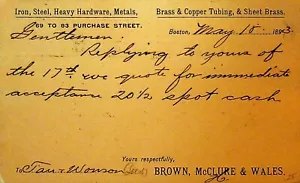 Iron, Steel, Heavy Hardware, Metals, Brass & Copper Tubing, & Sheet Brass.
69 TO 83 PURCHASE STREET.
Boston, May 18 1893.
Gentlemen:
Replying to yours of
the 17th we quote for immediate
acceptance 20½ spot cash
Yours respectfully,
To Tarr & Wonson BROWN, McCLURE & WALES,